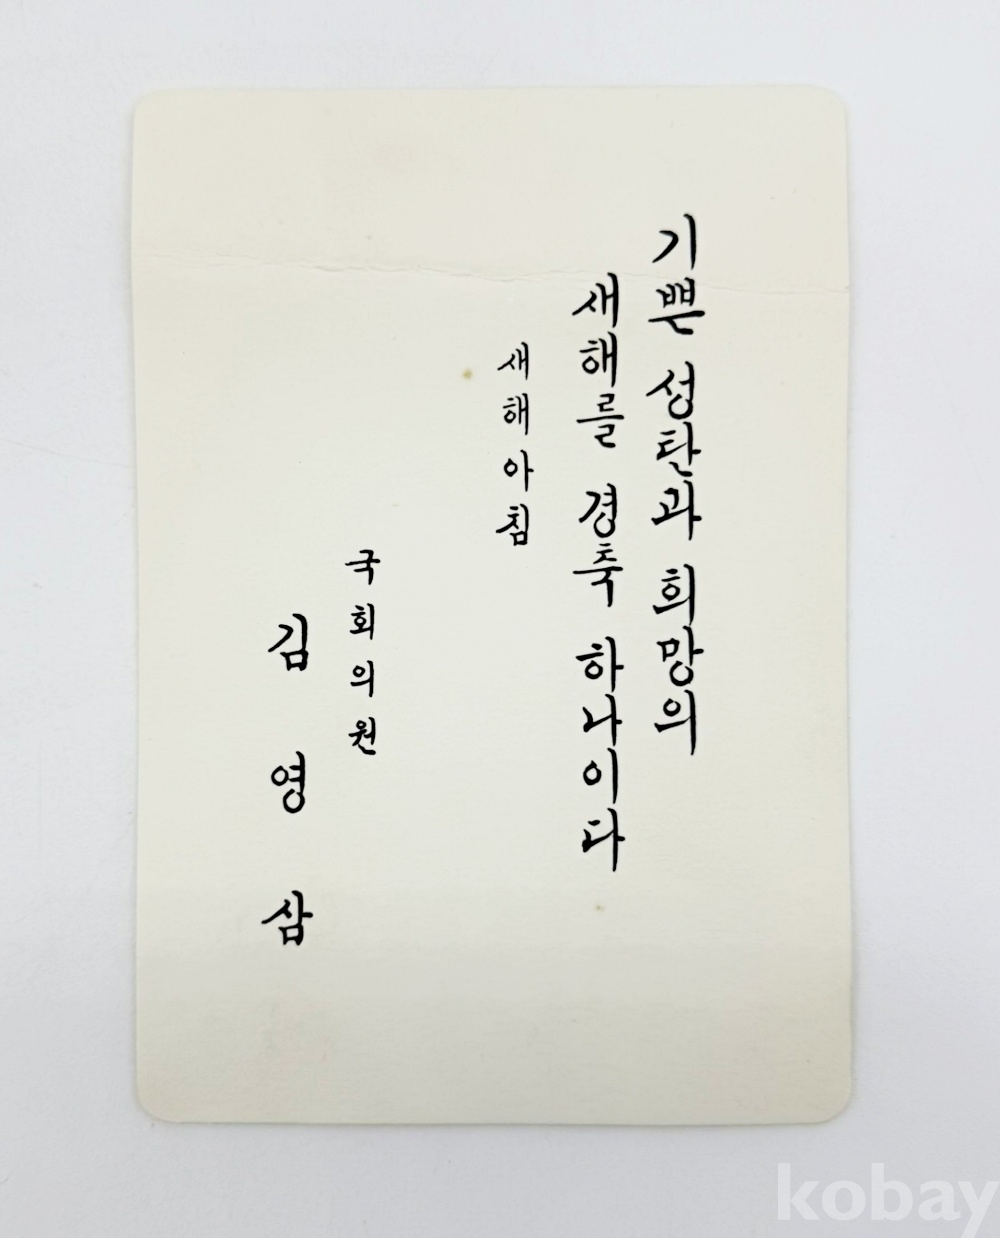 기쁜 성탄과 희망의
새해를 경축 하나이다
새해아침
국회의원
김 영 삼
kobay